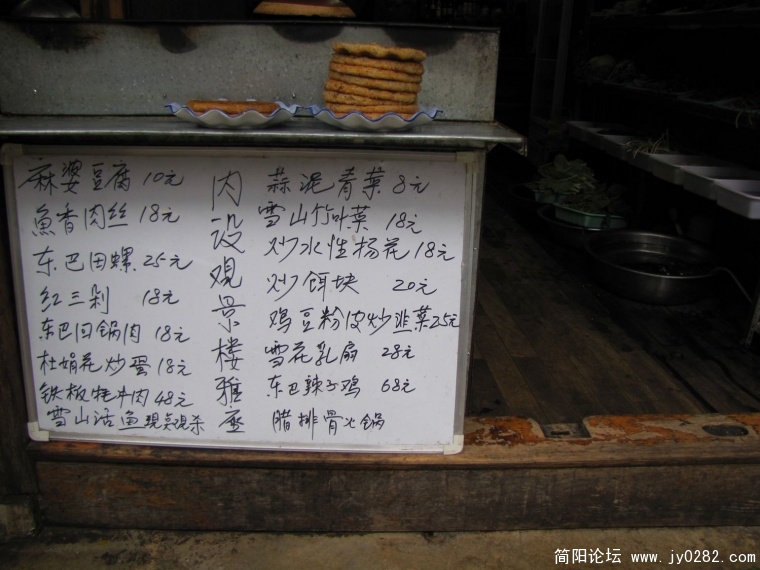 麻婆豆腐 10元
魚香肉丝 18元
东巴田螺 25元
红三剁 18元
东巴回锅肉 18元
杜娟花炒蛋 18元
铁板牦牛肉 48元
雪山活鱼现点现杀
内设观景楼雅座
蒜泥青菜 8元
雪山竹叶菜 18元
炒水性杨花 18元
炒饵块 20元
鸡豆粉皮炒韭菜25元
雪花乳扇 28元
东巴辣子鸡 68元
腊排骨火锅
简阳论坛 www.jy0282.com